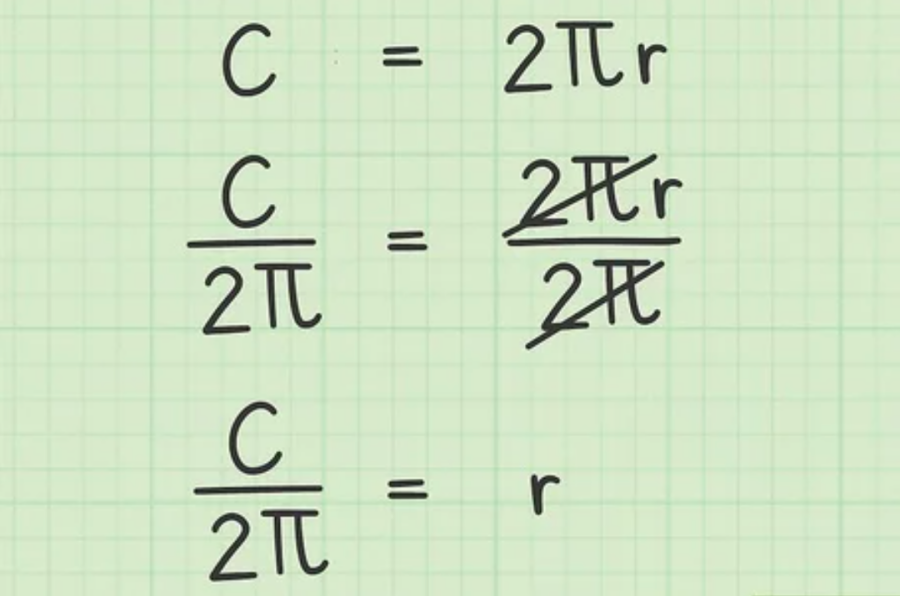 C = 2πr
C/2π = 2πr/2π
C/2π = r